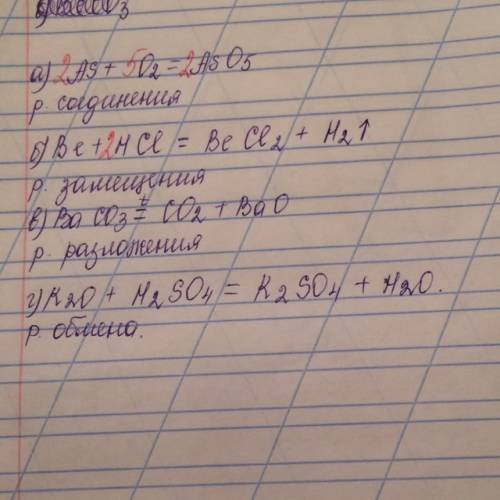 а) 2As + 5O2 = 2AsO5
р. соединения
б) Be + 2HCl = BeCl2 + H2↑
р. замещения
в) BaCO3 =t CO2 + BaO
р. разложения
г) K2O + H2SO4 = K2SO4 + H2O.
р. обмена.